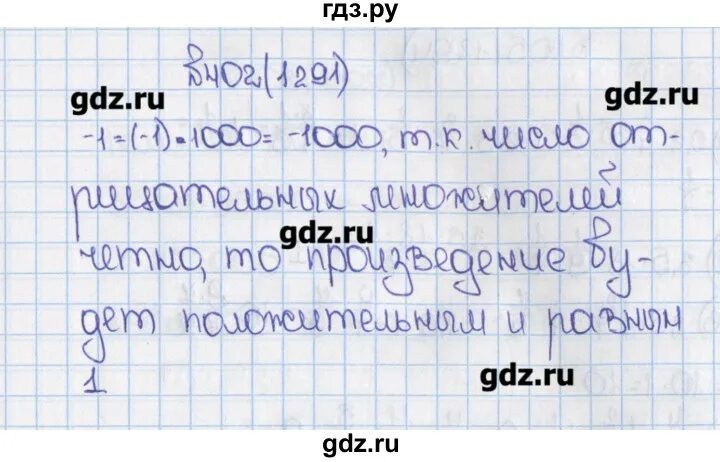 гдз.ру
в402(1291)
gdz.ru
gdz.ru
-1=(-1)·1000=-1000, т.к. число от-
рицательных множителей
gdz.ru
четно, то произведение бу-
дет положительным и равным
1
gdz.ru
gdz.ru